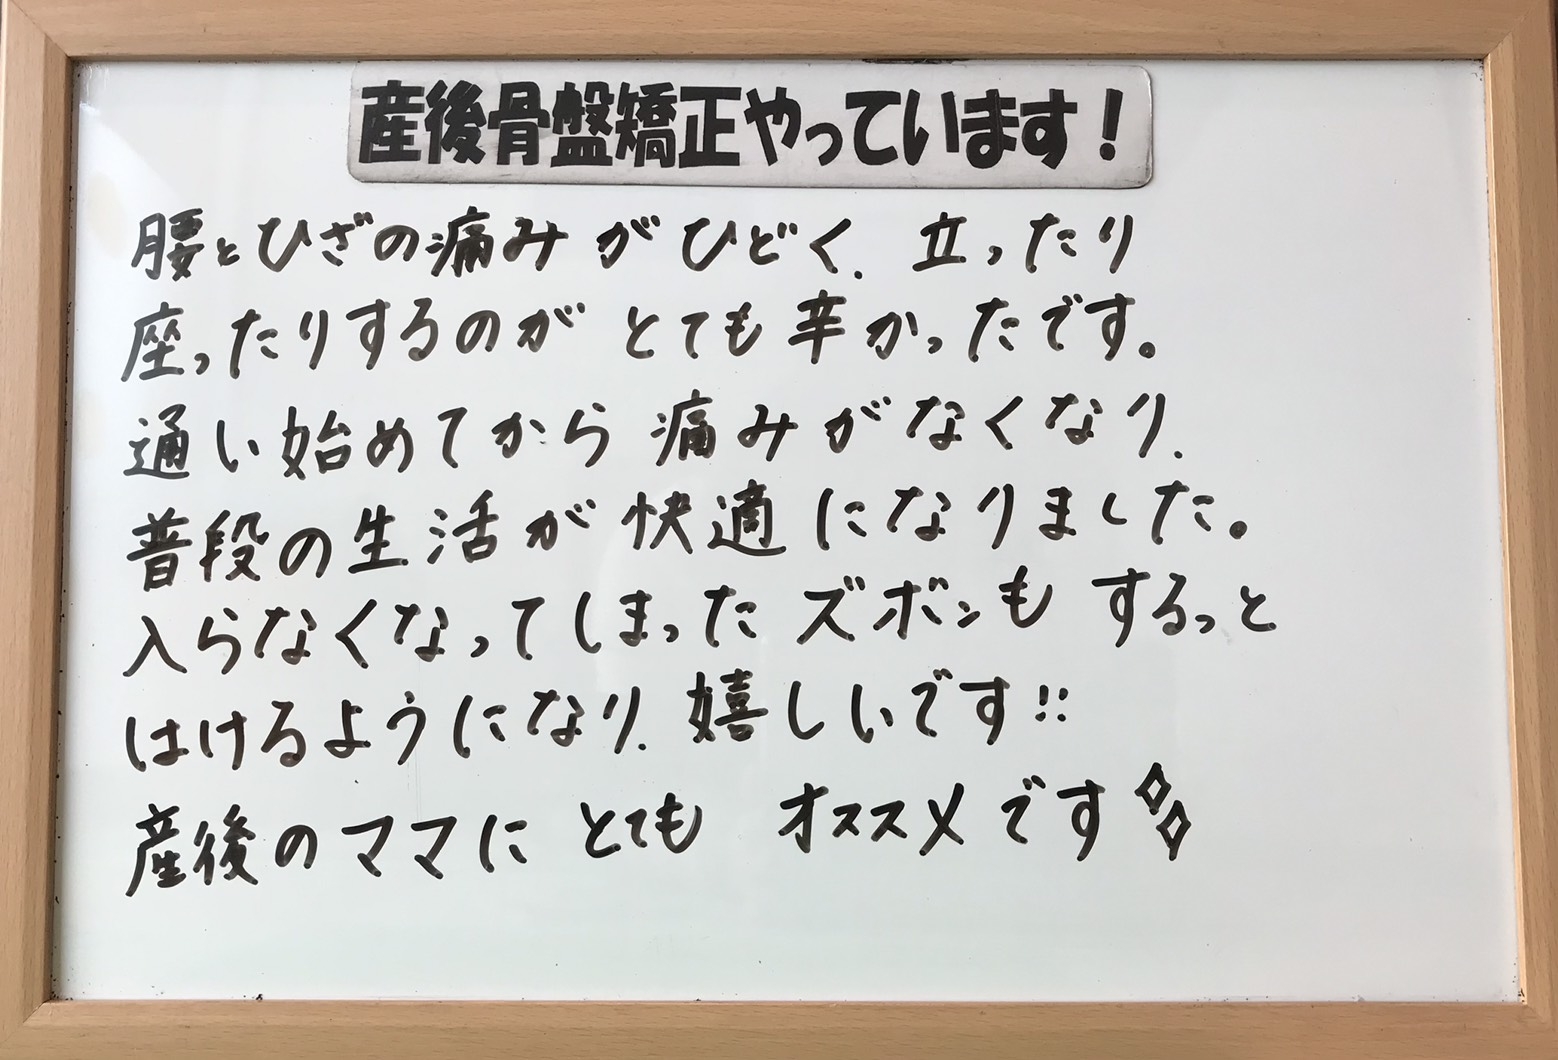 産後骨盤矯正やっています!
腰とひざの痛みがひどく、立ったり
座ったりするのがとても辛かったです。
通い始めてから痛みがなくなり、
普段の生活が快適になりました。
入らなくなってしまったズボンもするっと
はけるようになり、嬉しいです!!
産後のママにとてもオススメです